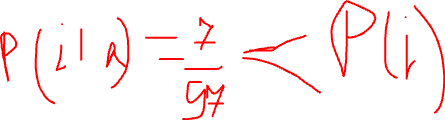 P(i|a) = 7/57 < P(i)